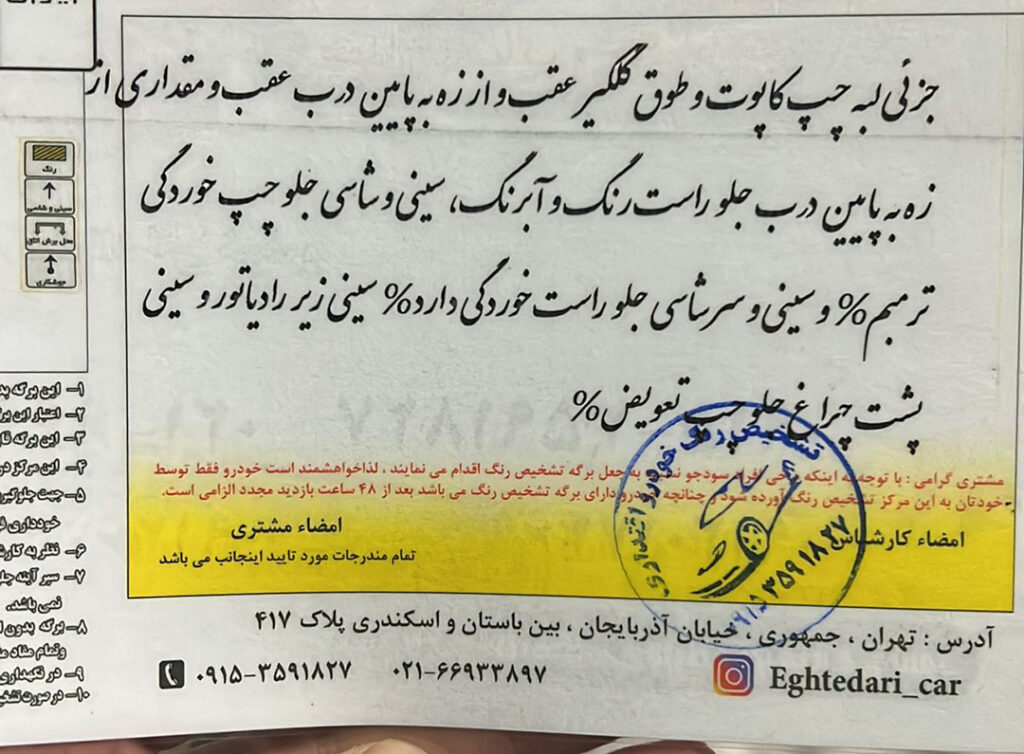 جزئی لبه چپ کاپوت و طوق گلگیر عقب و از زه به پایین درب عقب و مقداری از
زه به پایین درب جلو راست رنگ و آبرنگ، سینی و شاسی جلو چپ خوردگی
ترمیم% و سینی و سرشاسی جلو راست خوردگی دارد% سینی زیر رادیاتور و سینی
پشت چراغ جلو چپ تعویض%
رنگ
سینی و شاسی
محل برش اتاق
جوشکاری
۱- این برگه
۲- اعتبار این
۳- این برگه
۴- این مرکز
۵- جهت
خودداری
۶- نظر به
۷- سپر آینه
نمی باشد.
۸- برگه بدون
وتمام مفاد
۹- در نگهداری
۱۰- در صورت
مشتری گرامی : با توجه به اینکه به جعل برگه تشخیص رنگ اقدام می نمایند ، لذاخواهشمند است خودرو فقط توسط
خودتان به این مرکز تشخیص رنگ آورده شود و چنانچه خودرو دارای برگه تشخیص رنگ می باشد بعد از ۴۸ ساعت بازدید مجدد الزامی است.
امضاء کارشناس
امضاء مشتری
تمام مندرجات مورد تایید اینجانب می باشد
تشخیص رنگ خودرو اقتداری
۰۹۱۵ ۳۵۹۱۸۲۷
آدرس : تهران ، جمهوری ، خیابان آذربایجان ، بین باستان و اسکندری پلاک ۴۱۷
۰۹۱۵-۳۵۹۱۸۲۷ ۰۲۱-۶۶۹۳۳۸۹۷
Eghtedari_car